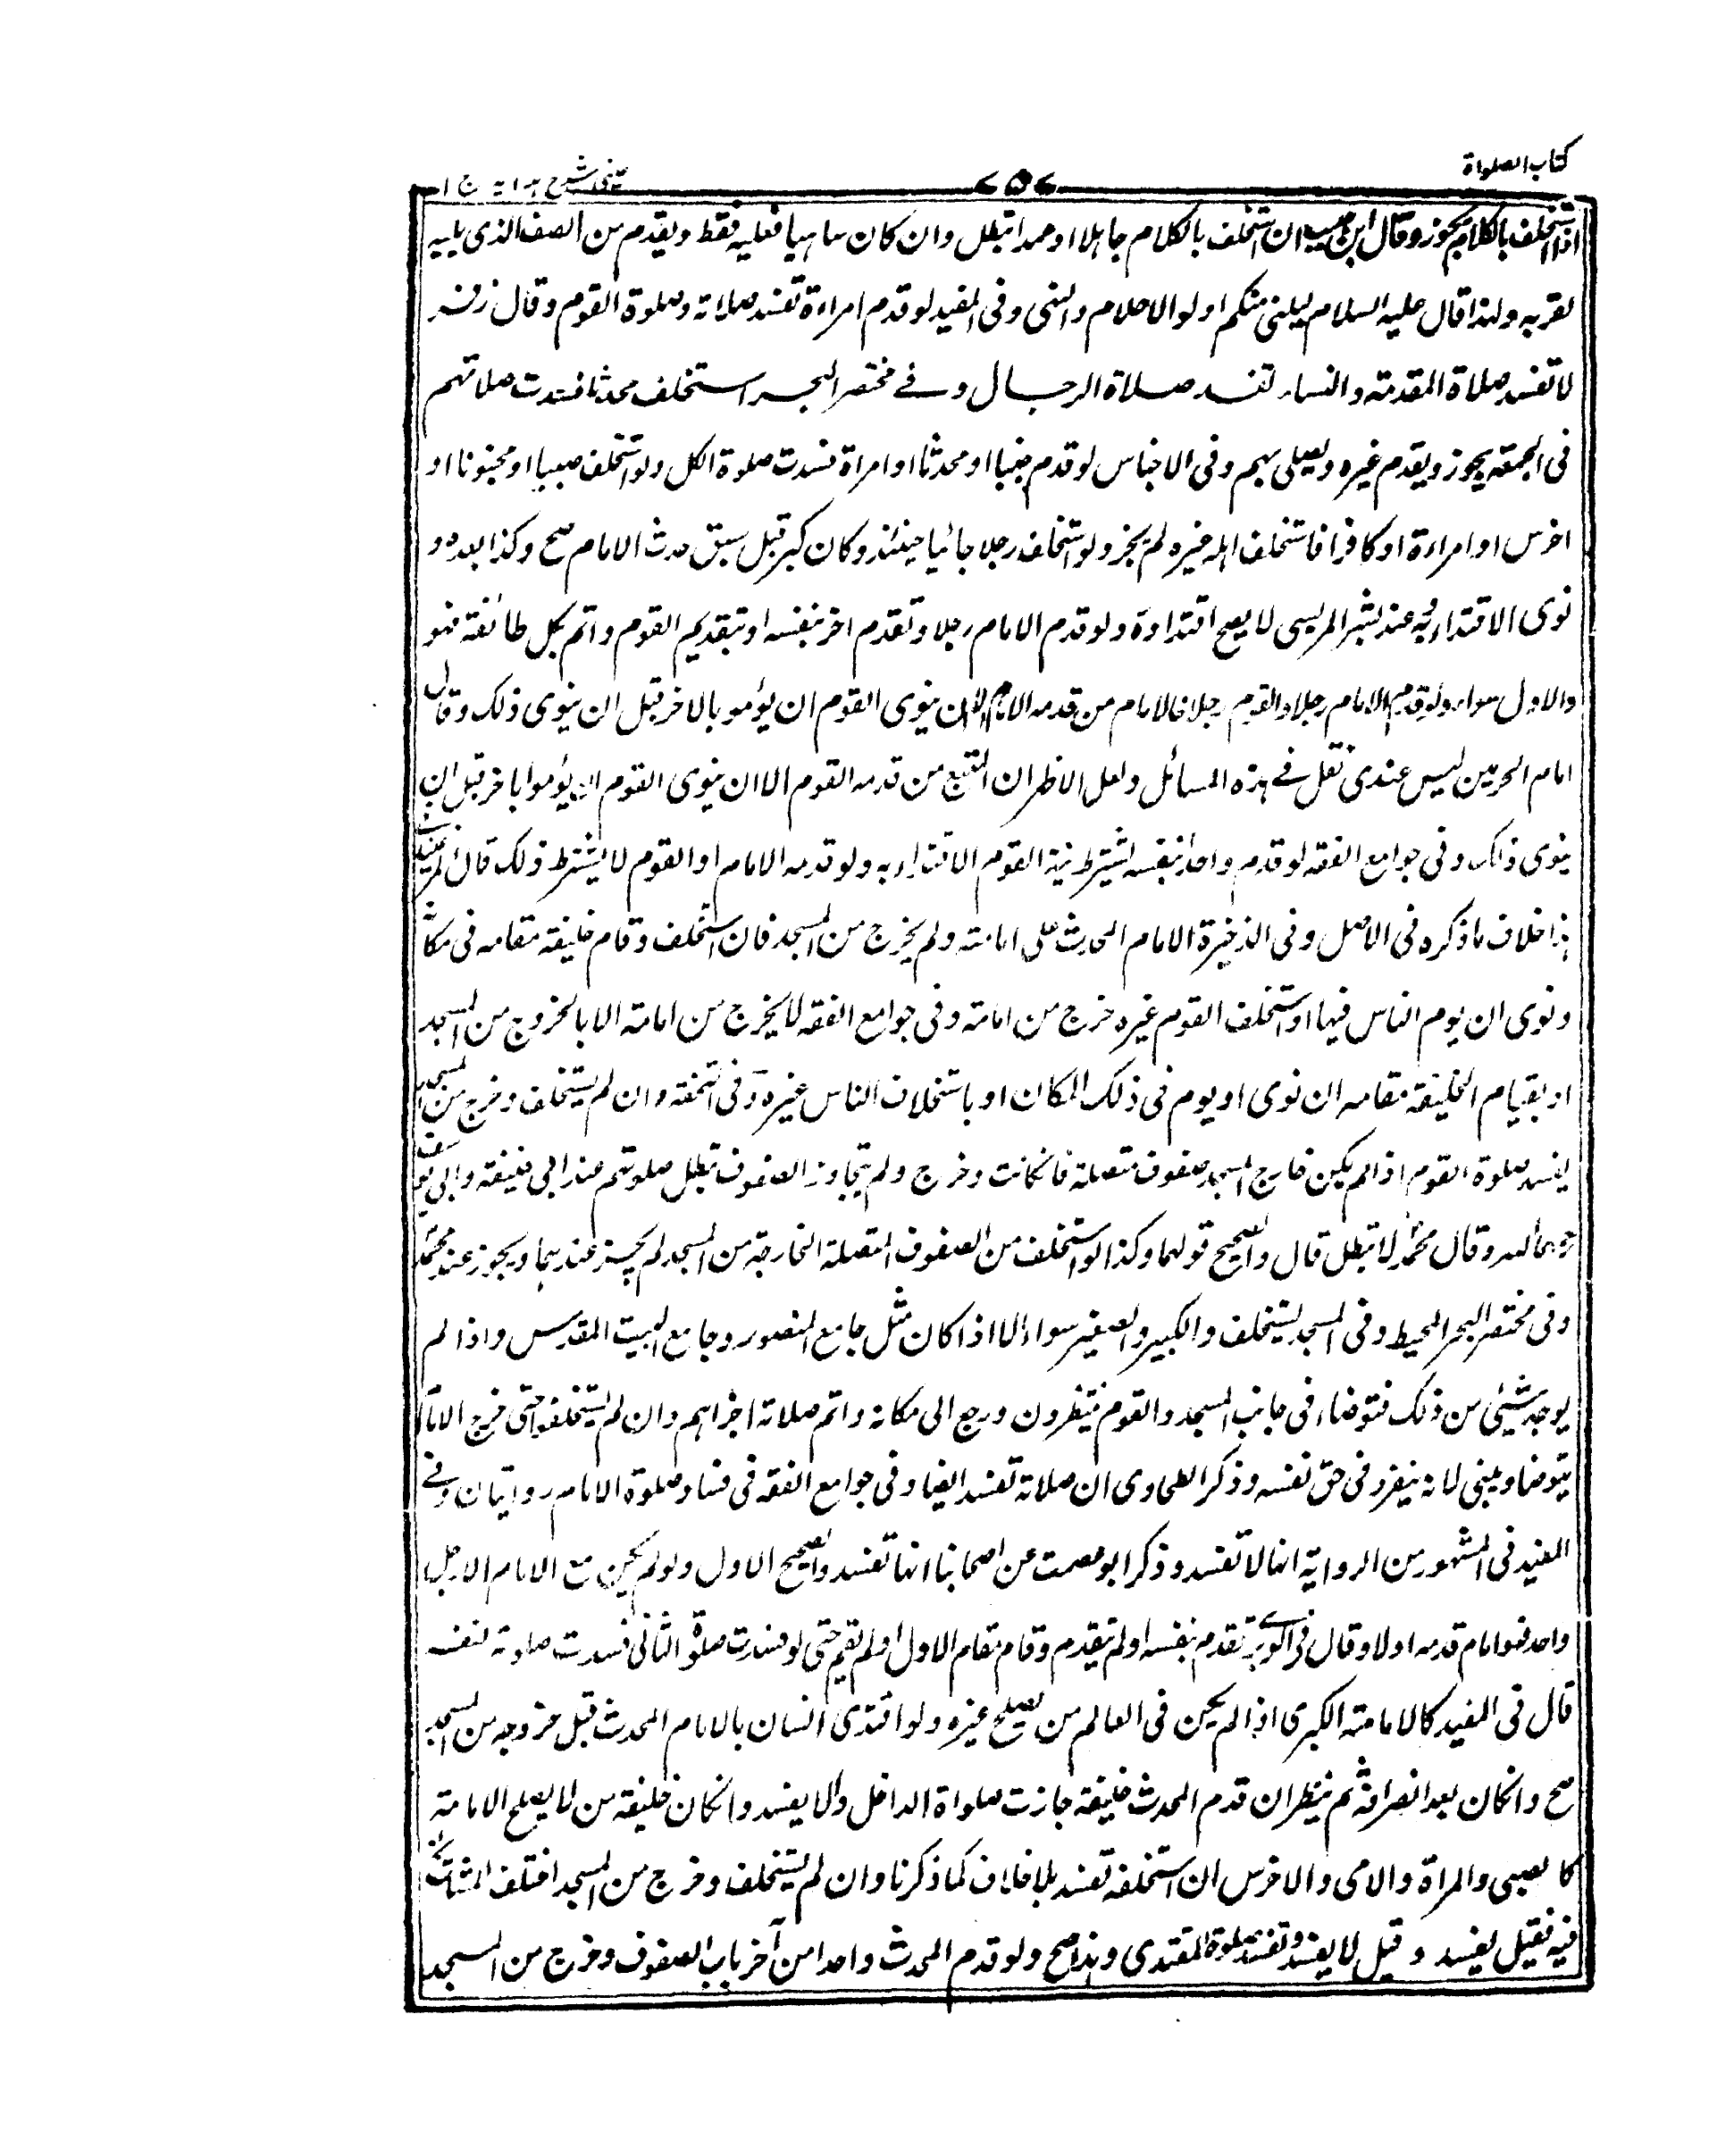 كتاب الصلواة
عينى شرح هداية ج ١
اذا استخلف بالكلام يجوز وقال ابن حبيب ان استخلف بالكلام جاهلا او عمدا تبطل وان كان ساهيا فعليه فقط ويقدم من الصف الذى يليه
لقربه ولهذا قال عليه السلام ليلنى منكم اولو الاحلام والنهى وفى المفيد لو قدم امراءة تفسد صلاته وصلوة القوم وقال زفر
لا تفسد صلاة المقدمة والنساء تفسد صلاة الرجال وفے مختصر البحر استخلف محدثا فسدت صلاتهم
فى الجمعة يجوز ويقدم غيره ويصلى بهم وفى الاجناس لو قدم جنبا او محدثا او امراة فسدت صلوة الكل ولو استخلف صبيا او مجنونا او
اخرس او امراءة او كافرا فاستخلف اهله غيره لم يجز ولو استخلف رجلا جائيا حينئذ وكان كبر قبل سبق حدث الامام صح وكذا بعده و
نوى الاقتداء به وعند بشر المريسى لا يصح اقتداوه ولو قدم الامام رجلا وتقدم اخر بنفسه او بتقديم القوم واتم بكل طائفة فهو
والاول سواء ولو قدم الامام رجلا والقوم رجلا فالامام من قدمه الامام الا ان ينوى القوم ان يؤمو بالاخر قبل ان ينوى ذلك وقال
امام الحرمين ليس عندى نقل فے هذه المسائل ولعل الاظهر ان المتبع من قدمه القوم الا ان ينوى القوم ان يؤموا باخر قبل ان
ينوى ذلك وفى جوامع الفقه لو قدم واحد بنفسه يشترط نية القوم الاقتداء به ولو قدمه الامام او القوم لا يشترط ذلك قال المرغينانى
هذا خلاف ما ذكره فى الاصل وفى الذخيرة الامام المحدث على امامته ولم يخرج من المسجد فان استخلف وقام خليفة مقامه فى مكانه
ونوى ان يوم الناس فيها او استخلف القوم غيره خرج من امامته وفى جوامع الفقه لا يخرج من امامته الا بالخروج من المسجد
او بقيام الخليفة مقامه ان نوى او يوم فى ذلك المكان او باستخلاف الناس غيره وفى التحفة وان لم يستخلف وخرج من المسجد
يفسد صلوة القوم اذا لم يكن خارج المسجد صفوف متصلة فانكانت وخرج ولم يتجاوز الصفوف تبطل صلوتهم عند ابى حنيفة وابى يوسف
رحمهما الله وقال محمد لا تبطل قال والصحيح قولهما وكذا لو استخلف من الصفوف المتصلة الخارجة من المسجد لم يجز عندهما ويجوز عند محمد
وفى مختصر البحر المحيط وفى المسجد يستخلف والكبير والصغير سواء الا اذا كان مثل جامع المنصور وجامع البيت المقدس واذا لم
يوجد شيئى من ذلك فتوضاء فى جانب المسجد والقوم ينتظرون ورجع الى مكانه واتم صلاته اجزاهم وان لم يستخلفوا حتى خرج الامام
يتوضا ويبنى لانه ينفرد فى حق نفسه وذكر الطحاوى ان صلاته تفسد ايضا وفى جوامع الفقه فى فساد صلوة الامام روايتان وفے
المفيد فى المشهور من الرواية انها لا تفسد وذكر ابو عصمت عن اصحابنا انها تفسد والصحيح الاول ولو لم يكن مع الامام الا رجل
واحد فهو امام قدمه اولا وقال تقدم بنفسه او لم يتقدم وقام مقام الاول او لم يقم حتى لو فسدت صلوة الثانى فسدت صلوته لنفسه
قال فى المفيد كالامامة الكبرى اذا لم يكن فى العالم من يصلح غيره ولو اقتدى انسان بالامام المحدث قبل خروجه من المسجد
صح وانكان بعد انصرافه ثم ينظر ان قدم المحدث خليفة جازت صلواة الداخل والا يفسد وانكان خليفة من لا يصلح الامامة
كالصبى والمراة والامى والاخرس ان استخلفه تفسد بلا خلاف كما ذكرنا وان لم يستخلف وخرج من المسجد اختلف المشائخ
فيه فقيل يفسد وقيل لا يفسد وتفسد صلوة المقتدى وهذا صح ولو قدم المحدث واحدا من آخر باب الصفوف وخرج من المسجد